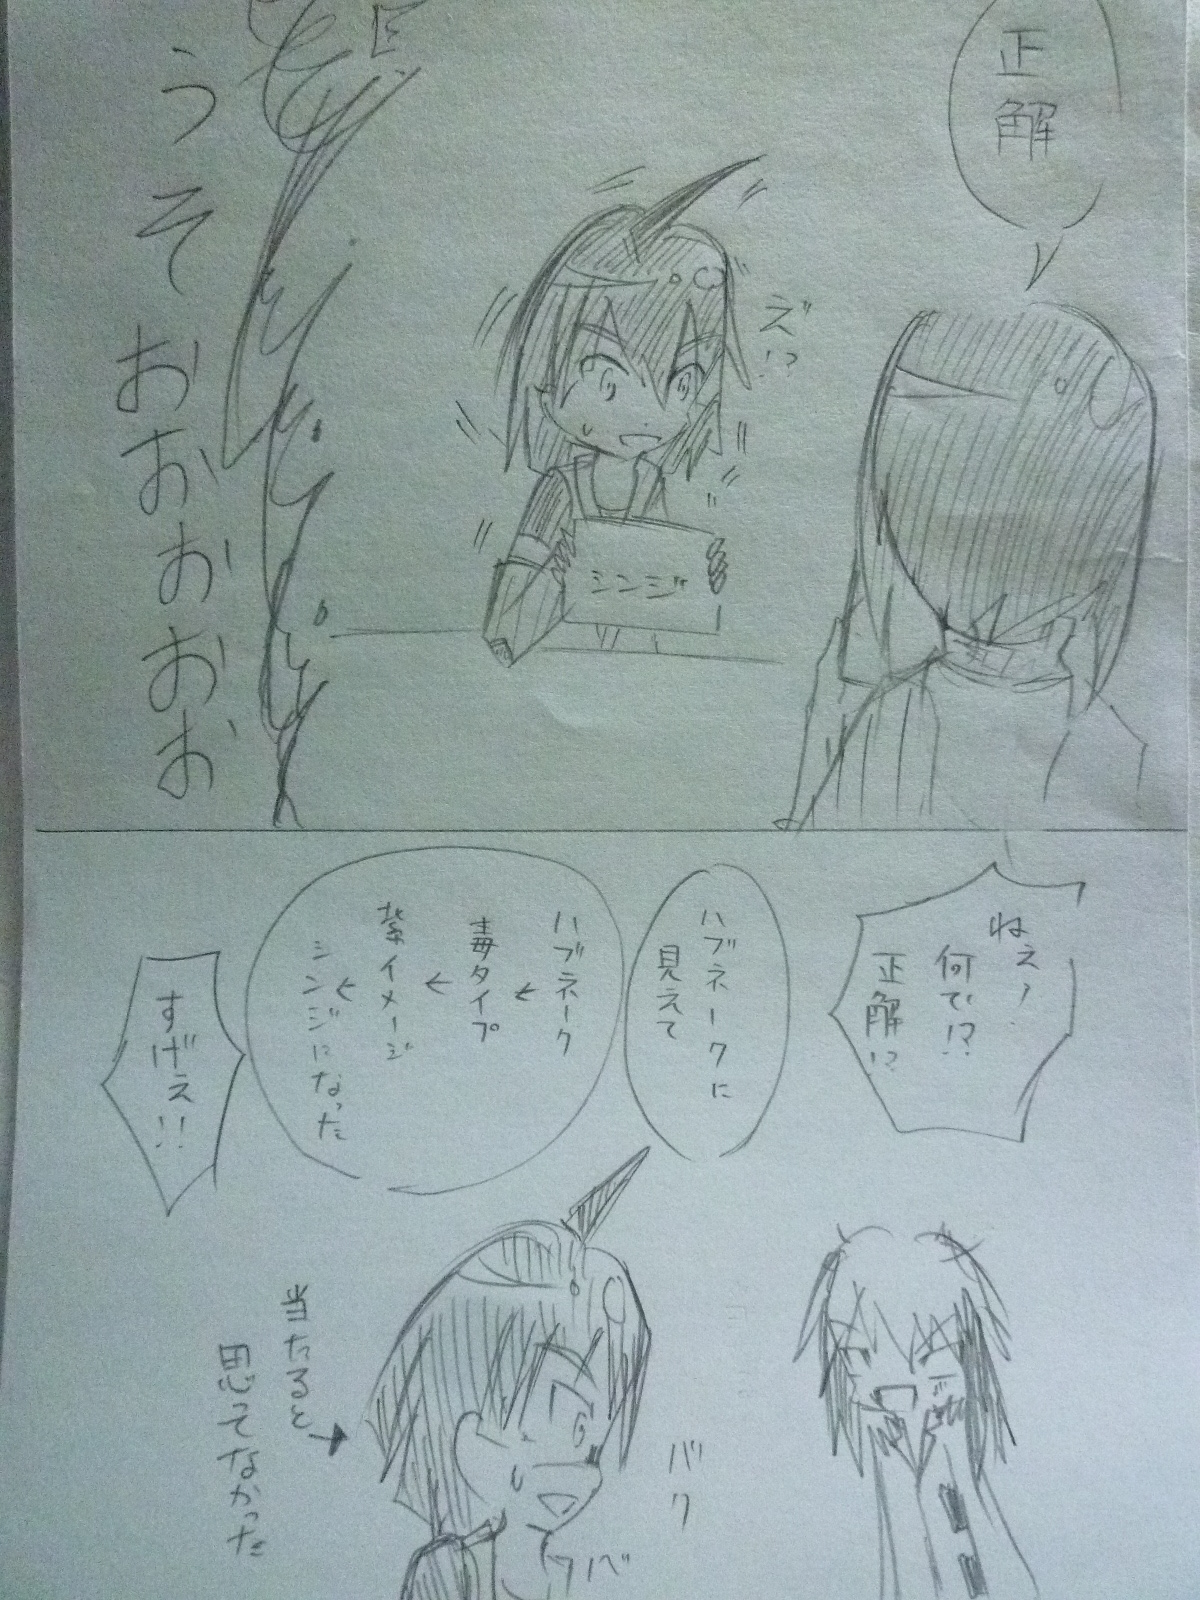 正解
え゛!?
シンジ
うそおおおおお
ねえ、
何で!?
正解!?
ハブネークに
見えて
ハブネーク
↓
毒タイプ
↓
紫イメージ
↓
シンジになった
すげえ!!
バク
バク
当たると
思てなかった